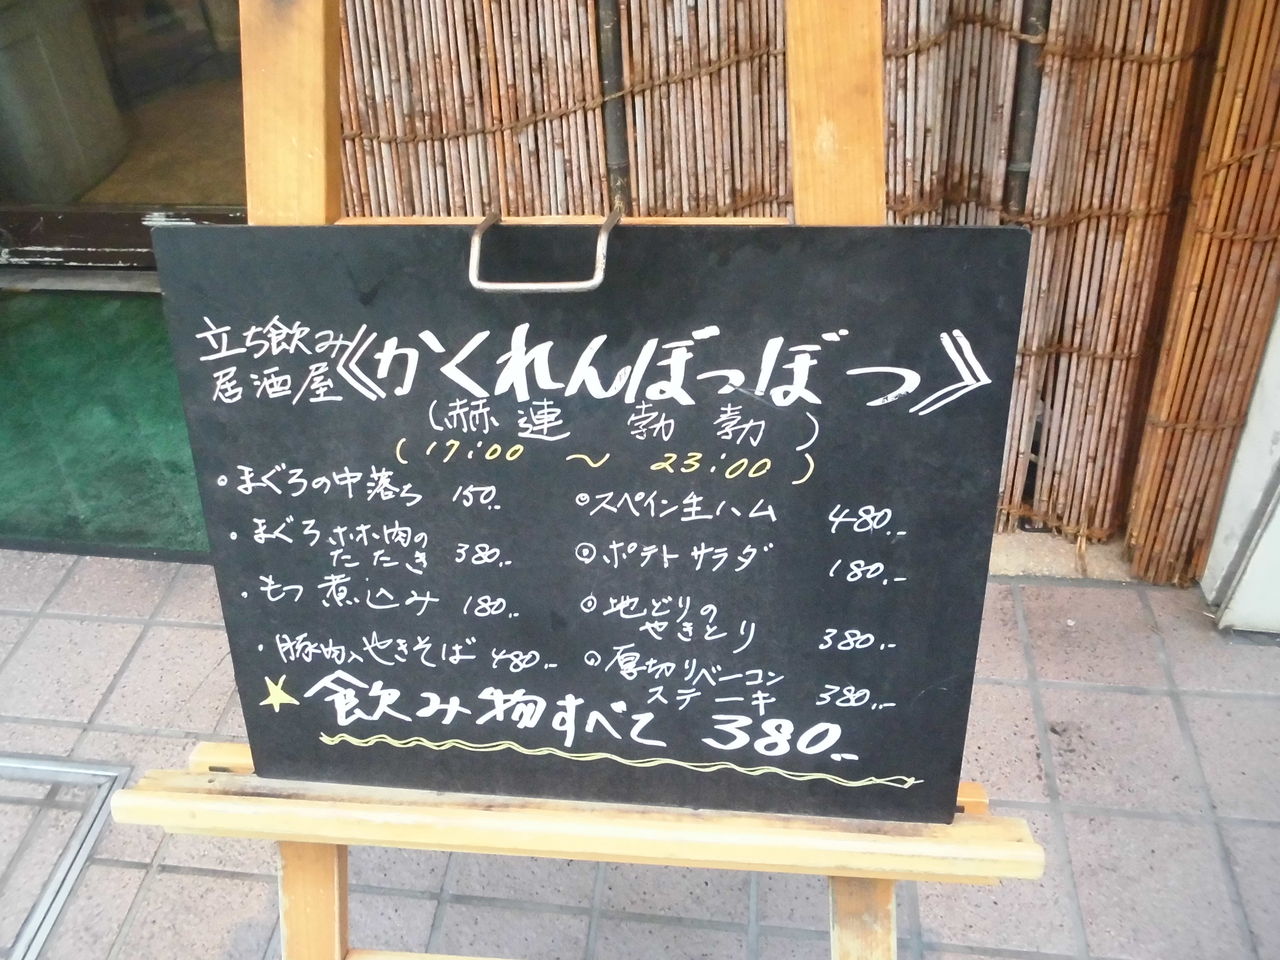 立ち飲み
居酒屋
《かくれんぼっぼつ》
(赫連 勃勃)
(17:00 〜 23:00)
・まぐろの中落ち 150..
・まぐろホホ肉の
たたき 380..
・もつ煮込み 180..
・豚肉入やきそば 480..
・スペイン生ハム 480..
・ポテトサラダ 180..
・地どりの
やきとり 380..
・厚切りベーコン
ステーキ 380..
☆飲み物すべて 380..